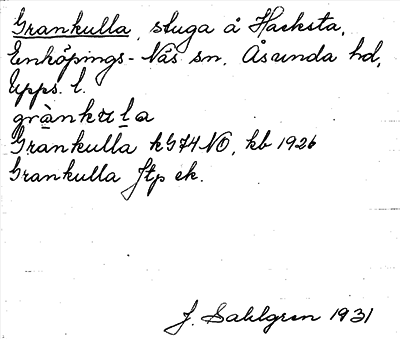 Grankulla, stuga å Hacksta,
Enköpings-Näs sn, Åsunda hd,
Upps. l.
grànkula
Grankulla kG74NO, kb 1926
Grankulla Jtp ek.
J. Sahlgren 1931